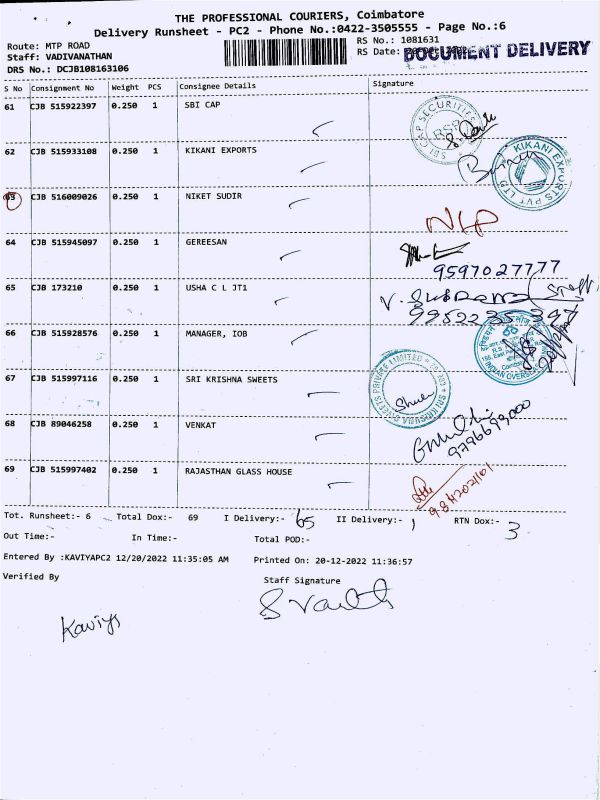 THE PROFESSIONAL COURIERS, Coimbatore
Delivery Runsheet - PC2 - Phone No.:0422-3505555 - Page No.:6
Route: MTP ROAD
Staff: VADIVANATHAN
DRS No.: DCJB108163106
RS No.: 1081631
RS Date:
DOCUMENT DELIVERY
S No Consignment No Weight PCS Consignee Details Signature
61 CJB 515922397 0.250 1 SBI CAP
SBI CAP SECURITIES
62 CJB 515933108 0.250 1 KIKANI EXPORTS
KIKANI EXPORTS PVT LTD
63 CJB 516009026 0.250 1 NIKET SUDIR
NLP
64 CJB 515945097 0.250 1 GEREESAN
9597027777
65 CJB 173210 0.250 1 USHA C L JT1
66 CJB 515928576 0.250 1 MANAGER, IOB
INDIAN OVERSEAS
67 CJB 515997116 0.250 1 SRI KRISHNA SWEETS
SRI KRISHNA SWEETS PRIVATE LIMITED
68 CJB 89046258 0.250 1 VENKAT
69 CJB 515997402 0.250 1 RAJASTHAN GLASS HOUSE
Tot. Runsheet:- 6 Total Dox:- 69 I Delivery:- 65 II Delivery:- 1 RTN Dox:- 3
Out Time:- In Time:- Total POD:-
Entered By :KAVIYAPC2 12/20/2022 11:35:05 AM Printed On: 20-12-2022 11:36:57
Verified By Staff Signature